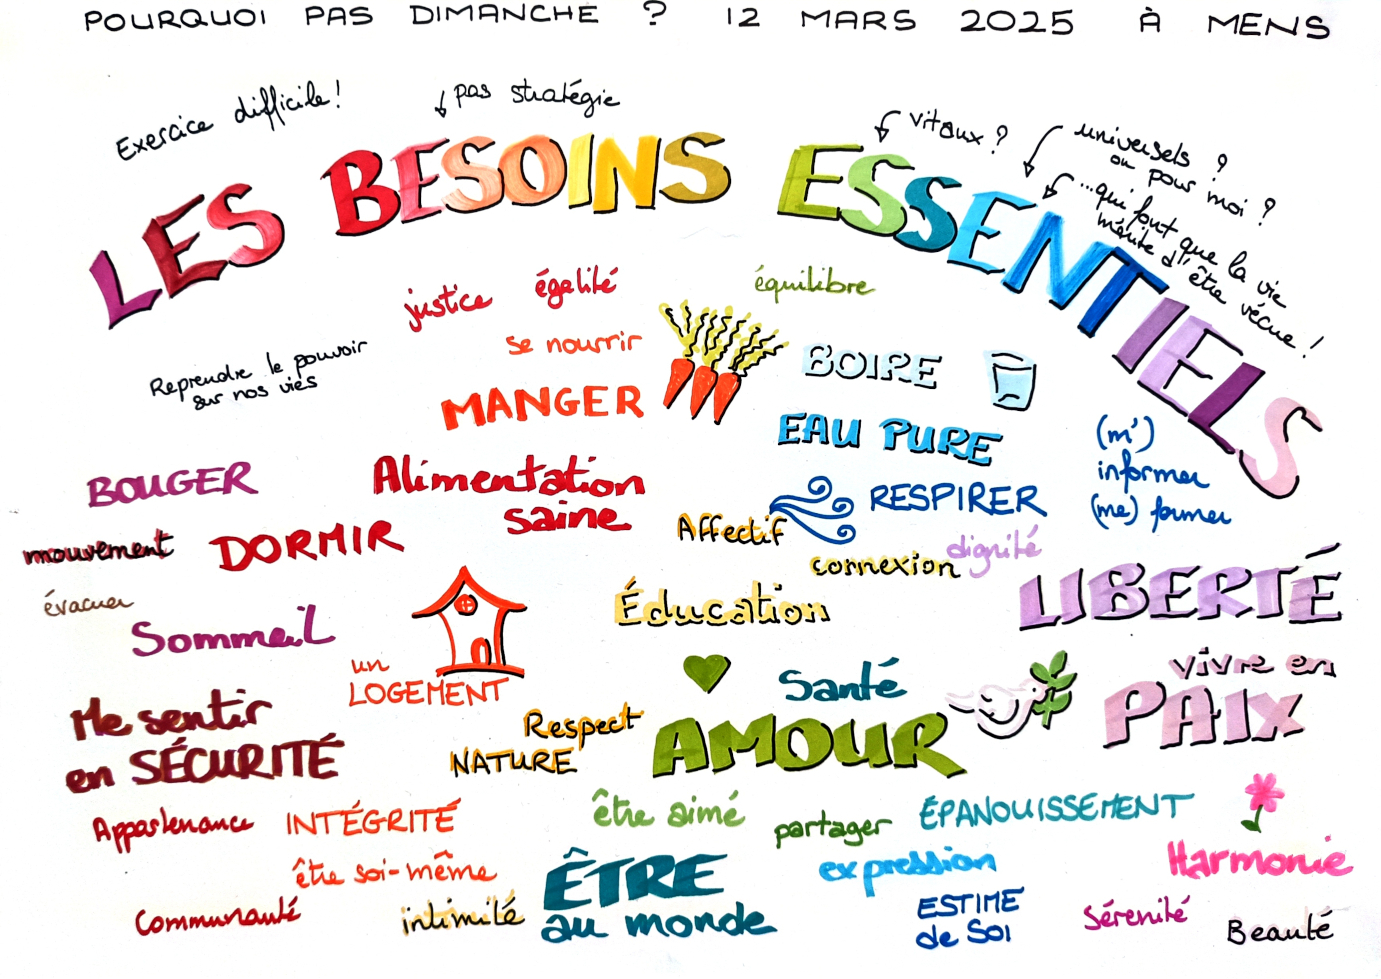 POURQUOI PAS DIMANCHE ? 12 MARS 2025 À MENS
Exercice difficile !
pas stratégie
vitaux ?
universels ?
ou pour moi ?
...qui font que la vie
mérite d'être vécue !
LES BESOINS ESSENTIELS
justice
égalité
équilibre
Reprendre le pouvoir
sur nos vies
se nourrir
MANGER
BOIRE
EAU PURE
(m')
informer
(me) former
BOUGER
Alimentation
saine
RESPIRER
mouvement
DORMIR
Affectif
connexion
dignité
évacuer
Sommeil
Éducation
LIBERTÉ
un
LOGEMENT
Santé
vivre en
PAIX
Me sentir
en SÉCURITÉ
Respect
NATURE
AMOUR
Appartenance
INTÉGRITÉ
être aimé
partager
ÉPANOUISSEMENT
être soi-même
ÊTRE
au monde
expression
Harmonie
Communauté
intimité
ESTIME
de SOI
Sérénité
Beauté